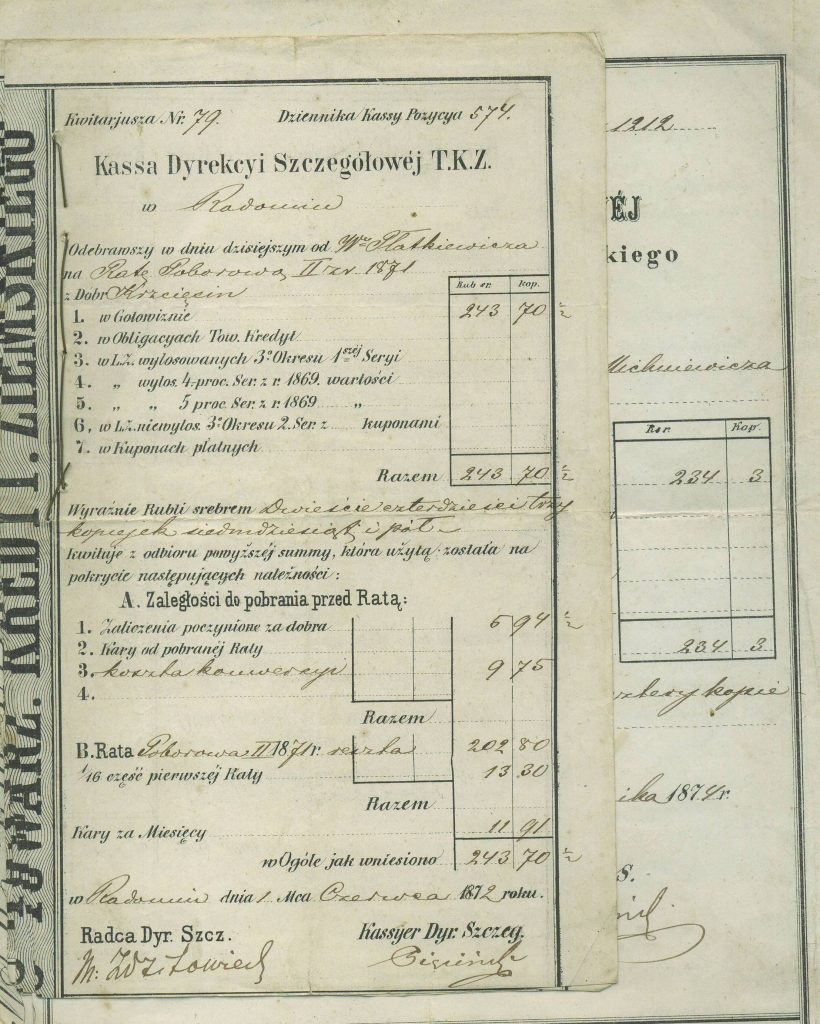 Kwitarjusza Nr. 79. Dziennika Kassy Pozycya 574.
Kassa Dyrekcyi Szczegółowéj T.K.Z.
w Radomiu
Odebrawszy w dniu dzisiejszym od
na Ratę Poborową II zr. 1871
z Dobr Krzcięcin
Rub sr. kop.
1. w Gotowiznie 243 70 ½
2. w Obligacyach Tow. Kredyt
3. w L.Z. wylosowanych 3º Okresu 1széj Seryi
4. „ wylos. 4-proc. Ser. z r. 1869. wartości
5. „ „ 5 proc. Ser. z r. 1869 „
6. w L.Z. niewylos. 3º Okresu 2. Ser. z kuponami
7. w Kuponach płatnych
Razem 243 70 ½
Wyraźnie Rubli srebrem Dwieście czterdzieści trzy
kopiejek siedmdziesiąt i pół
kwituje z odbioru powyższéj summy, która użytą została na
pokrycie następujących należności:
A. Zaległości do pobrania przed Ratą:
1. Zaliczenia poczynione za dobra 5 94 ½
2. Kary od pobranéj Raty
3. koszta konwersyi 9 75
4.
Razem
B. Rata Poborowa II 1871 r. reszta 202 80
1/16 część pierwszéj Raty 13 30
Razem
Kary za Miesięcy 11 91
w Ogóle jak wniesiono 243 70 ½
w Radomiu dnia 1 Mca Czerwca 1872 roku.
Radca Dyr. Szcz. Kassyer Dyr. Szczeg.
TOWARZ. KREDYT. ZIEMSKIEGO
1212
ÉJ
kiego
Rsr. Kop.
234 3
234 3
cztery kopie
ika 1874 r.
S.